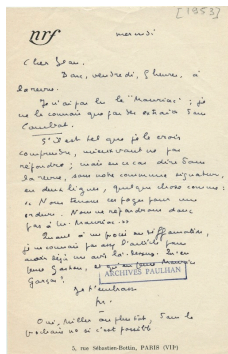 [1953]
nrf
mercredi
Cher Jean,
Donc, vendredi, 5 heures, à
la revue.
Je n'ai pas lu le "Mauriac" ; je
ne le connais que par des extraits dans
Combat.
S'il est tel que je le crois
comprendre, mieux vaut ne pas
répondre ; mais en ce cas dire dans
la revue, sans autre commune signature,
en deux lignes, quelque chose comme :
« Nous tenons ces pages pour une
ordure. Nous ne répondrons donc
pas à M. Mauriac. »
Quant à un procès en diffamation,
je ne connais pas assez l'article pour
avoir déjà un avis là-dessus.
ARCHIVES PAULHAN
Je t'embrasse
Oui, Milles au plutôt, dans le
prochain no si c'est possible
5, rue Sébastien-Bottin, PARIS (VIIe)